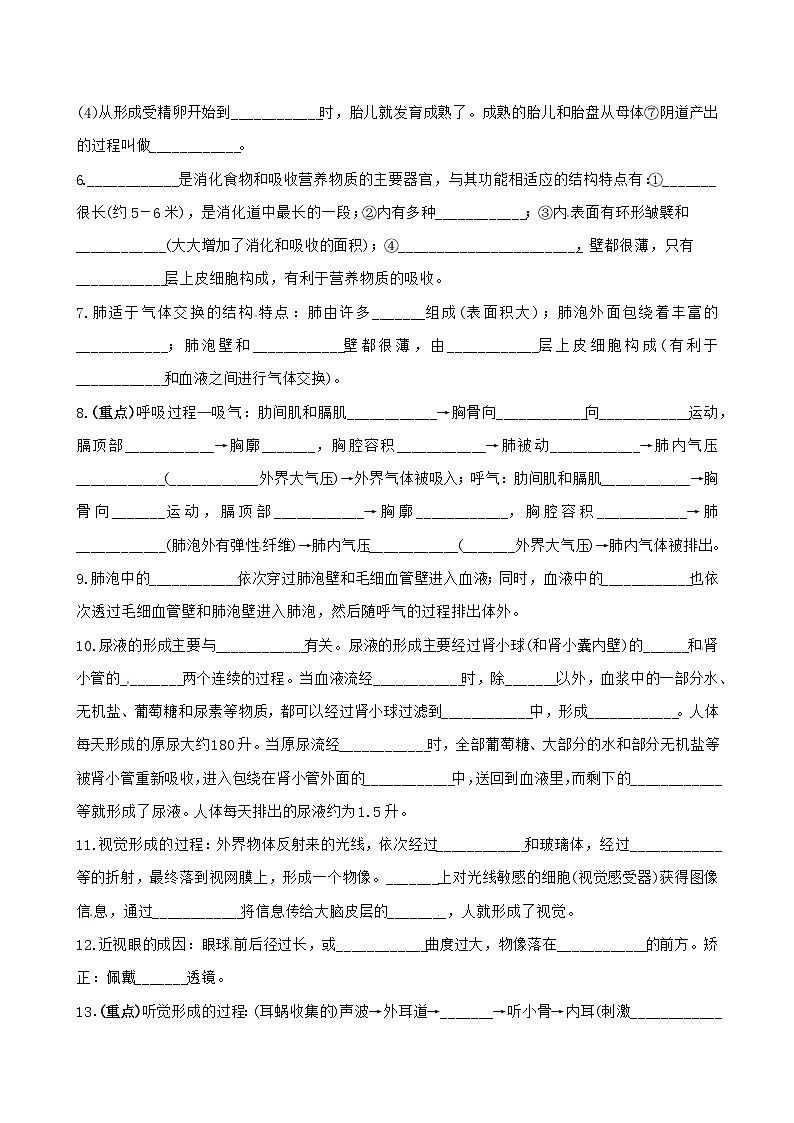 (4)从形成受精卵开始到____________时，胎儿就发育成熟了。成熟的胎儿和胎盘从母体⑦阴道产出
的过程叫做____________。
6.____________是消化食物和吸收营养物质的主要器官，与其功能相适应的结构特点有:①_______
很长(约5－6米)，是消化道中最长的一段;②内有多种____________; ③内表面有环形皱襞和
____________(大大增加了消化和吸收的面积); ④________________________, 壁都很薄，只有
____________层上皮细胞构成，有利于营养物质的吸收。
7.肺适于气体交换的结构特点：肺由许多_______组成(表面积大)；肺泡外面包绕着丰富的
____________；肺泡壁和____________壁都很薄，由____________层上皮细胞构成(有利于
____________和血液之间进行气体交换)。
8.(重点)呼吸过程—吸气：肋间肌和膈肌____________→胸骨向____________向____________运动，
膈顶部____________→胸廓_______，胸腔容积____________→肺被动____________→肺内气压
____________(____________外界大气压)→外界气体被吸入；呼气：肋间肌和膈肌____________→胸
骨向_______运动，膈顶部____________→胸廓____________，胸腔容积____________→肺
____________(肺泡外有弹性纤维)→肺内气压____________(_______外界大气压)→肺内气体被排出。
9.肺泡中的____________依次穿过肺泡壁和毛细血管壁进入血液；同时，血液中的____________也依
次透过毛细血管壁和肺泡壁进入肺泡，然后随呼气的过程排出体外。
10.尿液的形成主要与____________有关。尿液的形成主要经过肾小球(和肾小囊内壁)的______和肾
小管的________两个连续的过程。当血液流经____________时，除_______以外，血浆中的一部分水、
无机盐、葡萄糖和尿素等物质，都可以经过肾小球过滤到____________中，形成____________。人体
每天形成的原尿大约180升。当原尿流经____________时，全部葡萄糖、大部分的水和部分无机盐等
被肾小管重新吸收，进入包绕在肾小管外面的____________中，送回到血液里，而剩下的____________
等就形成了尿液。人体每天排出的尿液约为1.5升。
11.视觉形成的过程：外界物体反射来的光线，依次经过____________和玻璃体，经过____________
等的折射，最终落到视网膜上，形成一个物像。_______上对光线敏感的细胞(视觉感受器)获得图像
信息，通过____________将信息传给大脑皮层的________，人就形成了视觉。
12.近视眼的成因：眼球前后径过长，或____________曲度过大，物像落在____________的前方。矫
正：佩戴_______透镜。
13.(重点)听觉形成的过程：(耳蜗收集的)声波→外耳道→_______→听小骨→内耳(刺激____________